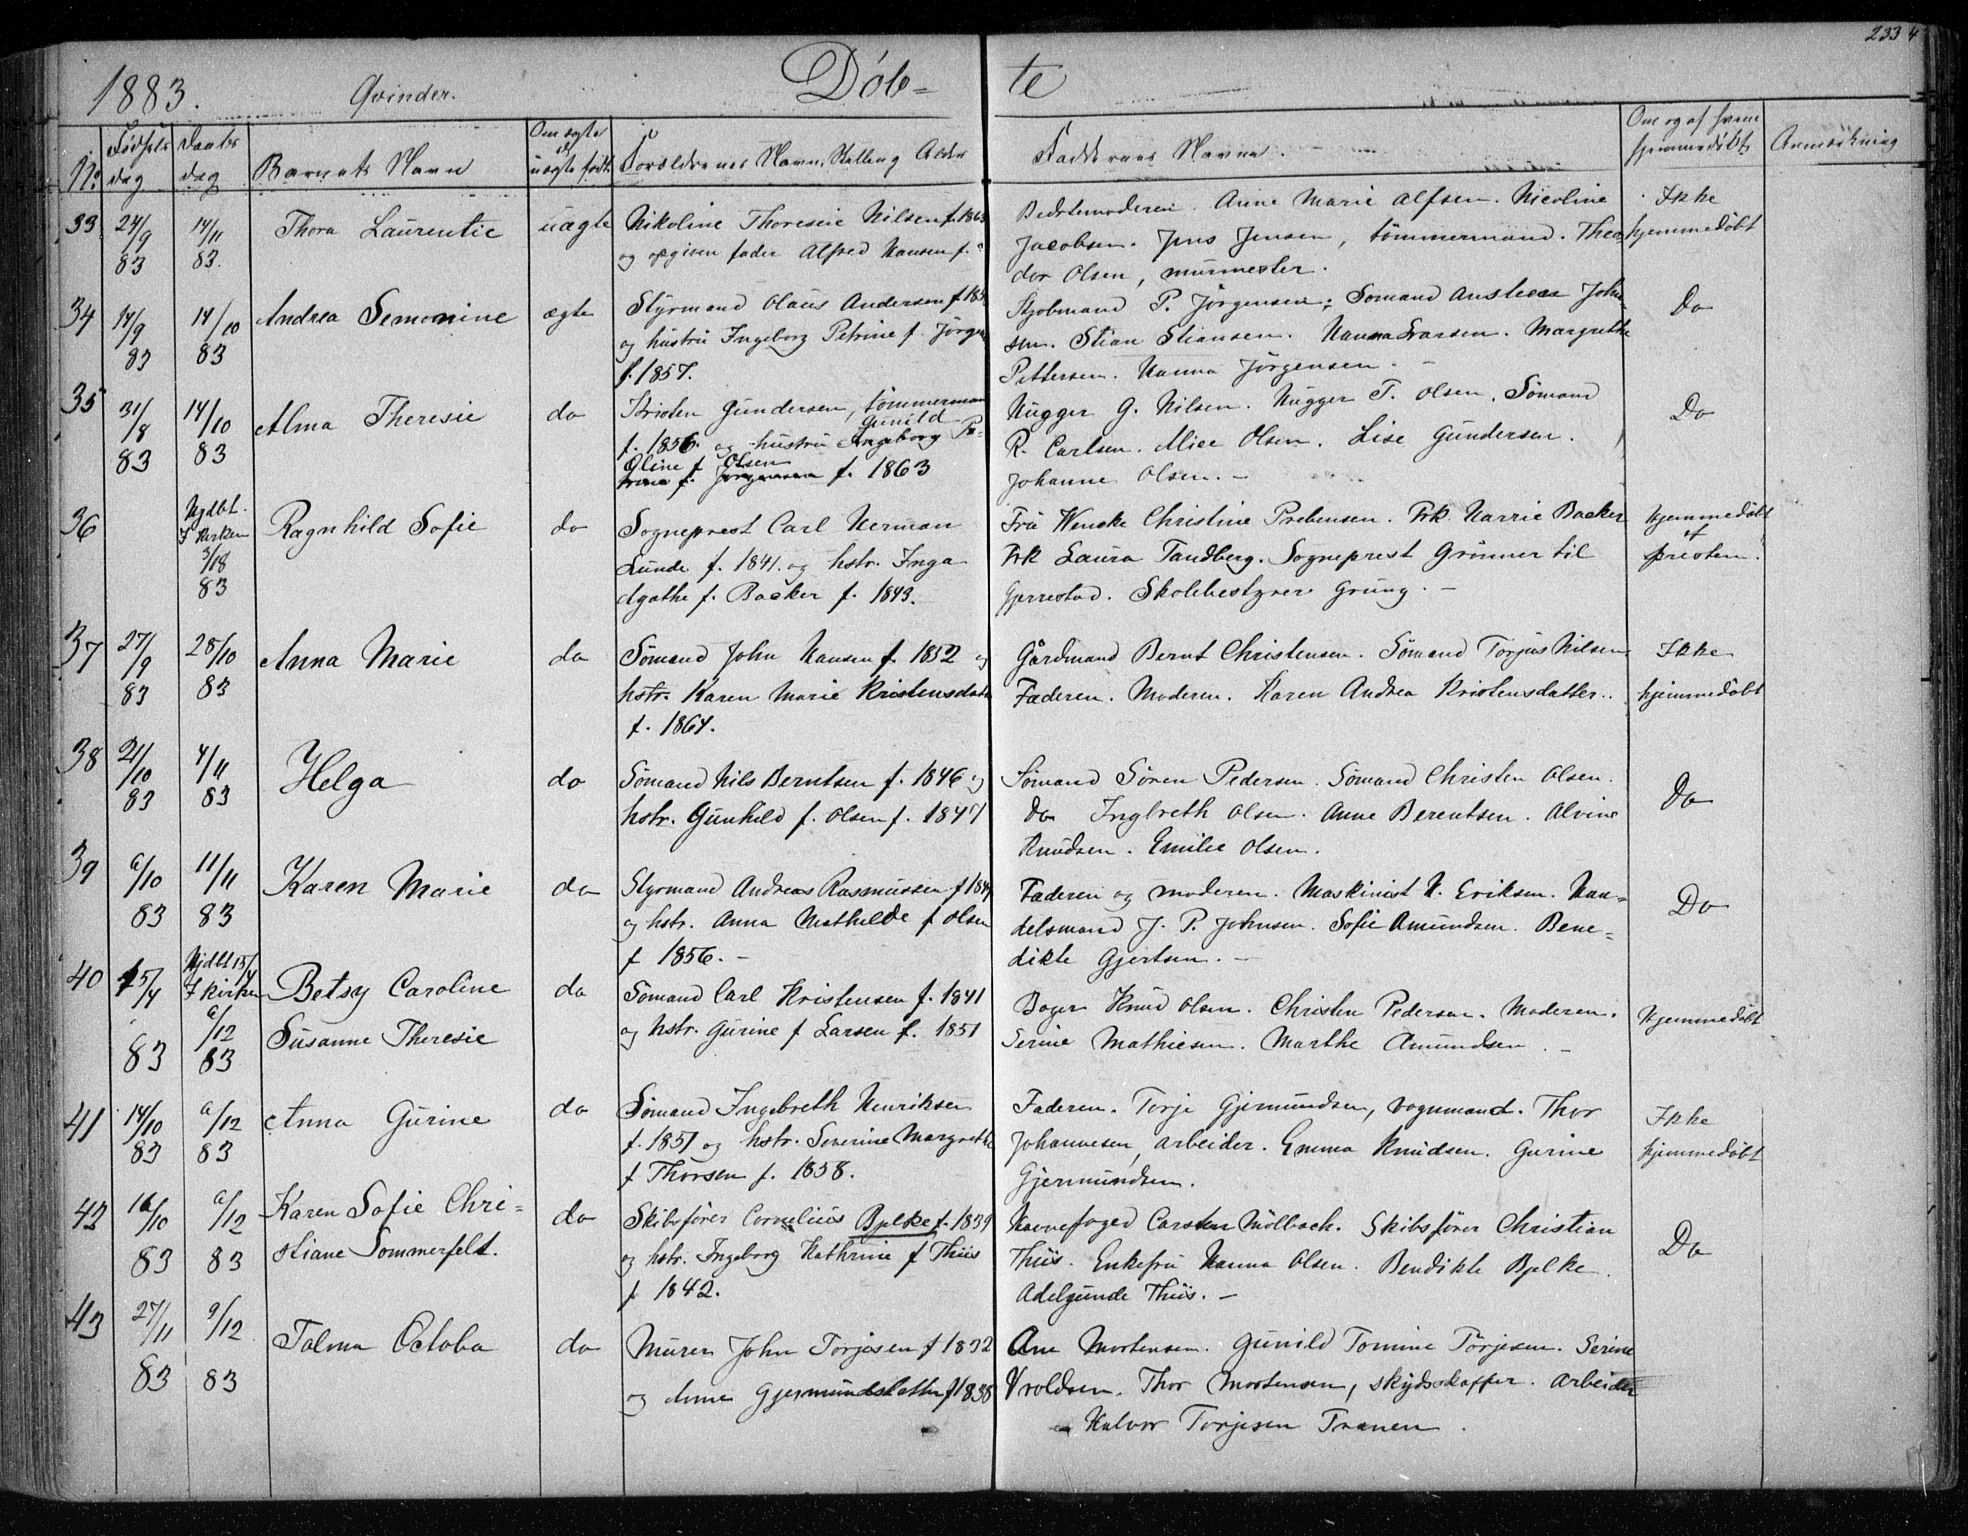 233
1883.
Qvinder.
Døb-
te
No
Fødsels dag
Daabs dag
Barnets Navn
Om ægte el uægte født.
Forældrenes Navn, Stilling Alder
Faddernes Navne.
Om og af hvem hjemmedøbt
Anmærkning
33
24/9 83
14/11 83.
Thora Laurentie
uægte
Nikoline Thoresen Nilsen f.
og opgiven fader Alfred Hansen f.
Bedstemoderen. Anne Marie Alfsen. Nicoline
Jacobsen. Jens Jensen, tømmermand. Theo-
dor Olsen, murmester.
Ikke
hjemmedøbt
34
14/9 83
14/10 83
Andrea Semonine
ægte
Styrmand Olaus Andersen f.
og hustru Ingeborg Petrine f. Jörgen
f. 1857.
Skjobmand P. Jørgensen. Sömand John
sen. Stian Stiansen. Hanna Larsen. Margrethe
Pettersen. Hanna Jörgensen. -
Do
35
31/8 83
14/10 83
Alma Theresie
do
Kristen Gundersen, tömmerman
Gunild
f. 1856 og hustru Ingeborg Pe-
Oline f Olsen
trine f. Jørgensen f. 1863
Hugger G. Nilsen. Hugger T. Olsen. Sömand
R. Carlsen. Alice Olsen. Lise Gundersen.
Johanne Olsen. -
Do
36
Hjdbt.
I Kirken
3/18 83
Ragnhild Sofie
do
Sogneprest Carl Herman
Lunde f. 1841. og hstr. Inga
Agathe f. Backer f. 1843.
Fru Wencke Christine Prebensen. Frk Harrie Backer
Frk Laura Tandberg. Sogneprest Grönner til
Gjerrestad. Skolebestyrer Grung. -
Hjemmedöbt
af
presten.
37
27/9 83
28/10 83
Anna Marie
do
Sömand John Hansen f. 1852 og
hstr. Karen Marie Kristensdatter
f. 1864.
Gårdmand Bernt Christensen. Sömand Torjus Nilsen
Faderen. Moderen. Karen Andrea Kristensdatter.
Ikke
hjemmedöbt
38
21/10 83
4/11 83
Helga
do
Sömand Nils Berntsen f. 1846 og
hstr. Gunhild f. Olsen f. 1847
Sömand Sören Pedersen. Sömand Christen Olsen.
Do Ingbreth Olsen. Anne Berentsen. Alvine
Knudsen. Emilie Olsen.
Do
39
6/10 83
11/11 83
Karen Marie
do
Styrmand Andreas Rasmussen f
og hstr. Anna Mathilde f Olsen
f 1856. -
Faderen og moderen. Maskinist H. Eriksen. Han-
delsmand J. P. Johnsen. Sofie Amundsen. Bene-
dikte Gjertsen. -
Do
40
15/4 83
Hjdbt 15/4
I kirken
6/12 83
Betsy Caroline
Susanne Theresie
do
Sömand Carl Kristensen f. 1841
og hstr. Gurine f Larsen f. 1851
Bager Knud Olsen. Christen Pedersen. Moderen.
Serine Mathiesen. Marthe Amundsen. -
Hjemmedöbt
41
14/10 83
6/12 83
Anna Gurine
do
Sömand Ingebreth Henriksen
f. 1851 og hstr. Severine Margrethe
f Thorsen f. 1858.
Faderen. Torje Gjermundsen, vognmand. Thor
Johannesen, arbeider. Emma Knudsen. Gurine
Gjermundsen.
Ikke
hjemmedöbt
42
16/10 83
6/12 83
Karen Sofie Chri-
stiane Sommerfelt.
do
Skibsförer Cornelius Bjelke f. 1839
og hstr. Ingeborg Kathrine f Thiis
f 1842.
Havnefoged Carsten Möllbach. Skibsförer Christian
Thiis. Enkefru Hanna Olsen. Bendikte Bjelke.
Adelgunde Thiis. -
Do
43
27/11 83
9/12 83
Talma Octoba
do
Murer John Torjesen f 1832
og Anne Gjermundsdatter f 1838
Ane Mortensen. Gunild Tomine Törjesen. Serine
Vroldsen. Thor Mortensen, skydsskaffer. Arbeider
Halvor Torjesen Tranen.